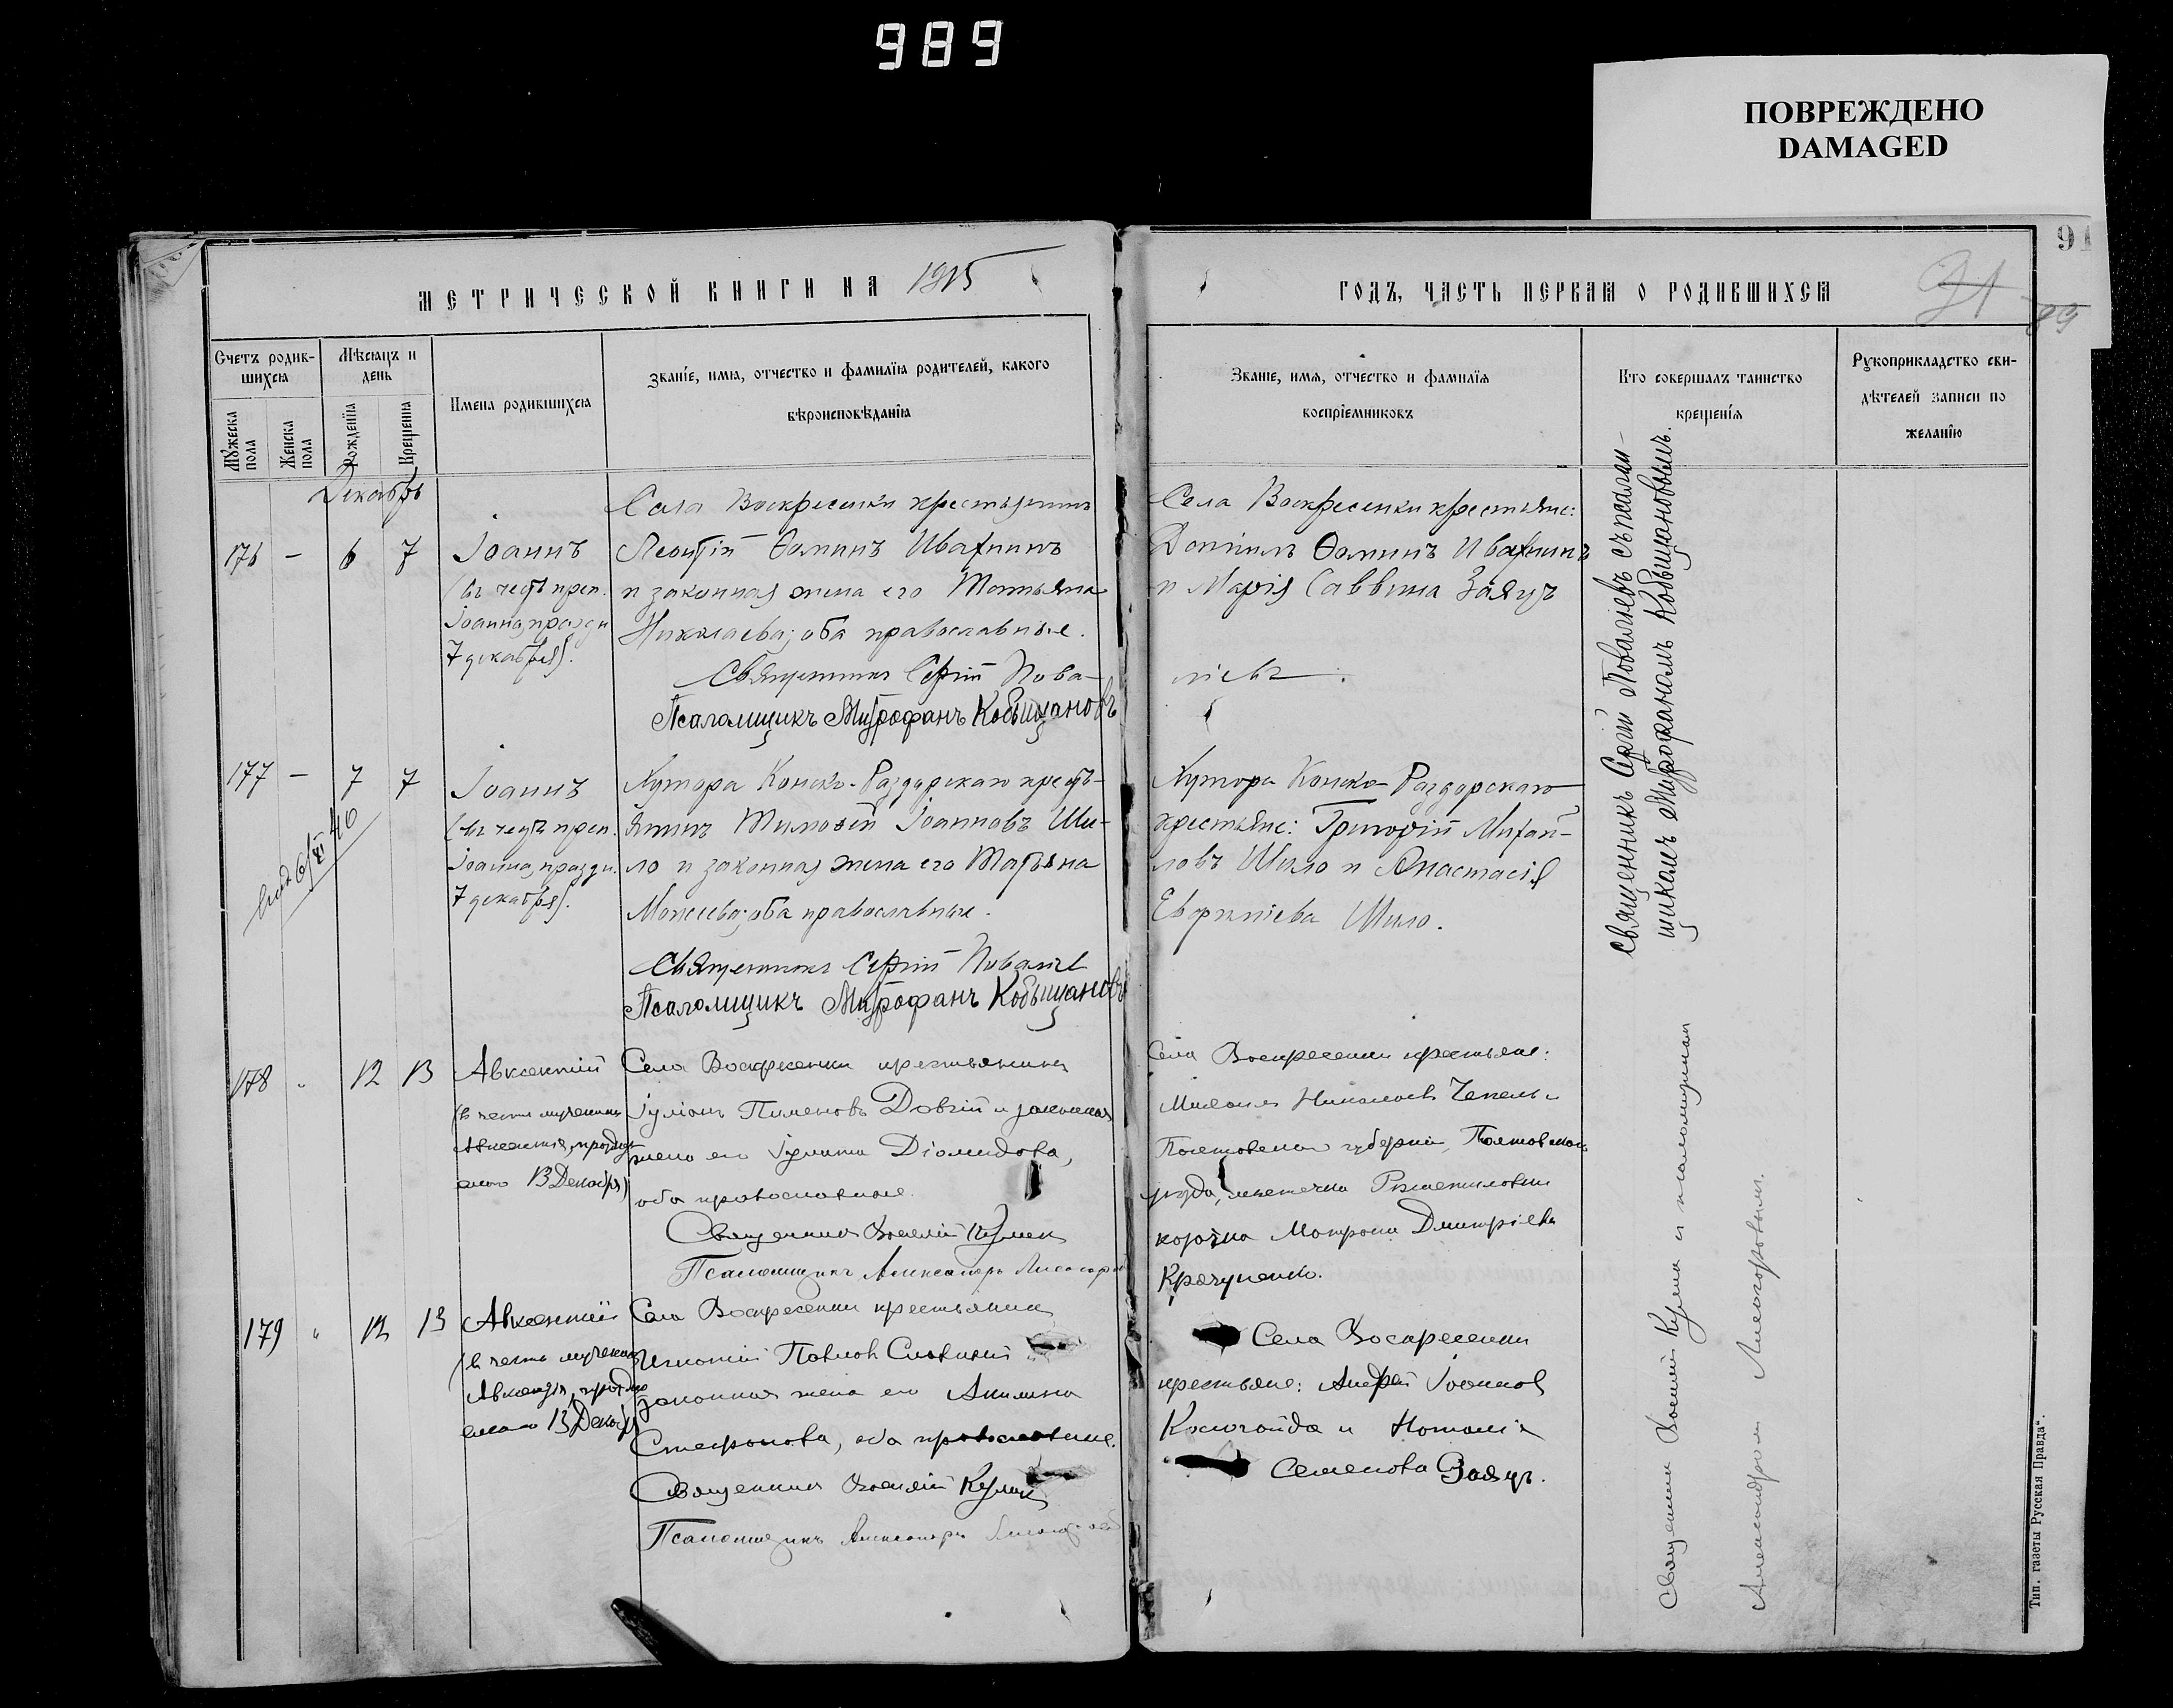 989
ПОВРЕЖДЕНО
DAMAGED
91
91
89
МЕТРИЧЕСКОЙ КНИГИ НА 1915
Счетъ родив-
шихся
Мѣсяцъ и
день
Имена родившихся
Званіе, имя, отчество и фамилія родителей, какого
вѣроисповѣданія
Мужеска
пола
Женска
пола
Рожденія
Крещенія
Декабрь
176 — 6 7
Іоаннъ
(въ честь преп.
Іоанна, праздн.
7 декабря).
Села Воскресенки крестьянинъ
Леонтій Ѳоминъ Ивахнинъ
и законная жена его Татьяна
Николаева; оба православные.
Священникъ Сергій Пова-
Псаломщикъ Митрофанъ Кобыщановъ
177 — 7 7
6/XI 40
Іоаннъ
(въ честь преп.
Іоанна, праздн.
7 декабря).
Хутора Конско-Раздорскаго кресть-
янинъ Тимоѳей Іоанновъ Ши-
ло и законная жена его Татьяна
Моисеева; оба православные.
Священникъ Сергій Повалiевъ
Псаломщикъ Митрофанъ Кобыщановъ
178 „ 12 13
Авксентій
(въ честь мученика
Авксентія, праздну
емаго 13 Декабря)
Села Воскресенки крестьянинъ
Іуліанъ Пименовъ Довгій и законная
жена его Іулита Діомидова,
оба православные.
Священникъ Василій Кулик
Псаломщикъ Александръ Лисогоръ
179 „ 12 13
Авксентій
(въ честь мученика
Авксентія, праздну
емаго 13 Декабр
Села Воскресенки крестьянинъ
Игнатій Павловъ
законная жена его Акилина
Стефанова, оба православные.
Священникъ Василій Кулик
Псаломщикъ Александръ
ГОДЪ, ЧАСТЬ ПЕРВАЯ О РОДИВШИХСЯ
Званіе, имя, отчество и фамилія
воспріемниковъ
Кто совершалъ таинство
крещенія
Рукоприкладство сви-
дѣтелей записи по
желанію
Села Воскресенки крестьяне:
Даніилъ Ѳоминъ Ивахнинъ
и Марія Саввина Заяцъ
ліевъ.
Хутора Конско-Раздорскаго
крестьяне: Григорій Михай-
ловъ Шило и Анастасія
Евфиміева Шило.
Села Воскресенки крестьяне:
Михаилъ Николаевъ Чепель и
Полтавской губерніи, Полтавскаго
уѣзда, мѣстечка Решетиловки
козачка Матрона Дмитріева
Крячуненко.
Села Воскресенки
крестьяне: Андрей Іоанновъ
и Наталія
Семенова Заяцъ.
Священникъ Сергій Повалiевъ съ псалом-
щикомъ Митрофаномъ Кобыщановымъ.
Священникъ Василій и псаломщикомъ
Александромъ Лисогоровымъ.
Тип. газеты Русская Правда“.